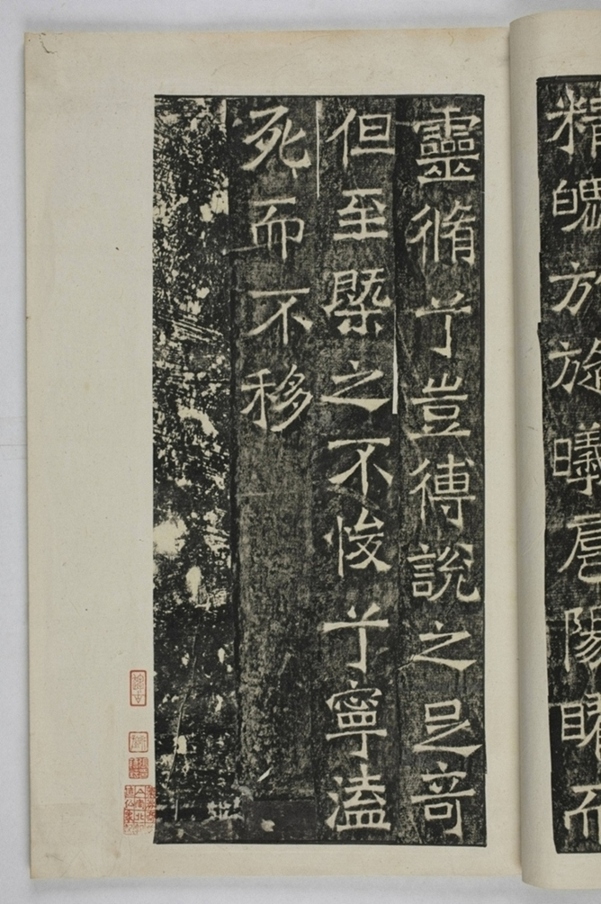 精魄方旋曦陽曜而
靈脩兮豈傅說之足奇
但至槩之不悛兮寧溘
死而不移